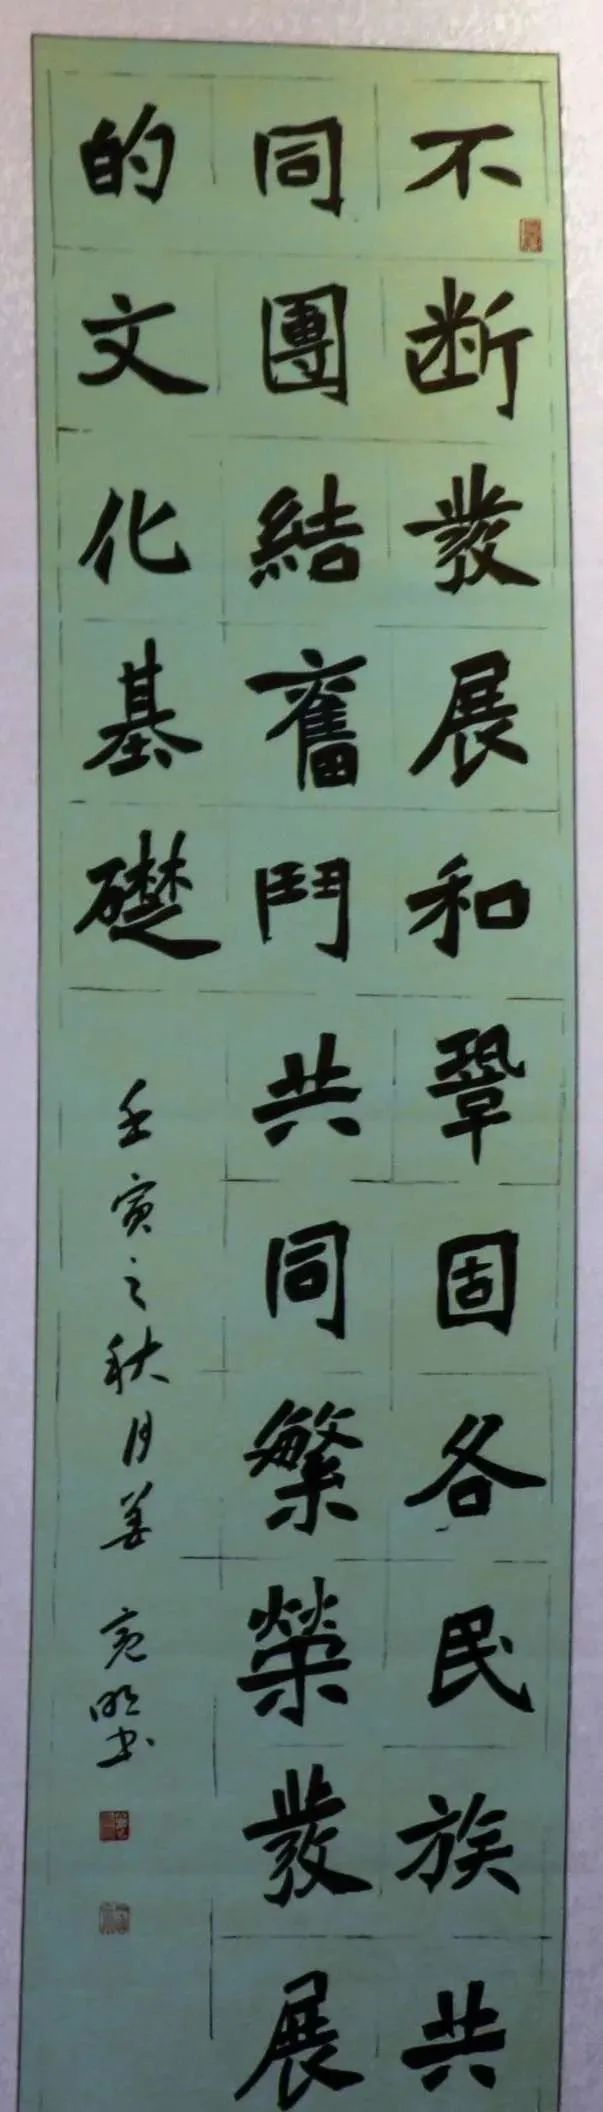 不断發展和鞏固各民族共
同團結奮鬥共同繁榮發展
的文化基礎
壬寅之秋月姜亮明书